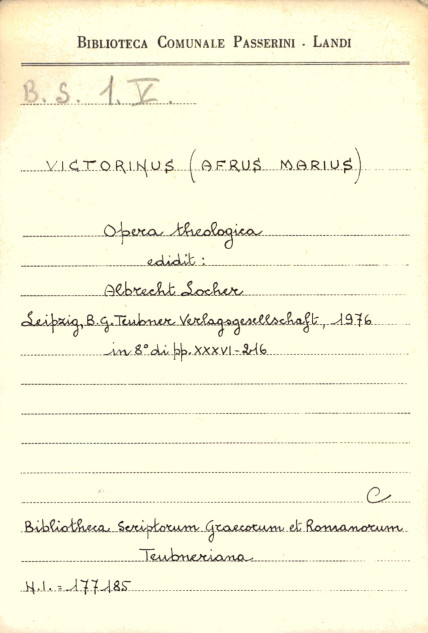 BIBLIOTECA COMUNALE PASSERINI - LANDI
B. S. 1. V.
VICTORINUS (AFRUS MARIUS)
Opera theologica
edidit :
Albrecht Locher
Leipzig, B.G. Teubner Verlagsgesellschaft, 1976
in 8° di pp. XXXVI-216
C
Bibliotheca Scriptorum Graecorum et Romanorum
Teubneriana
N.I. = 177185